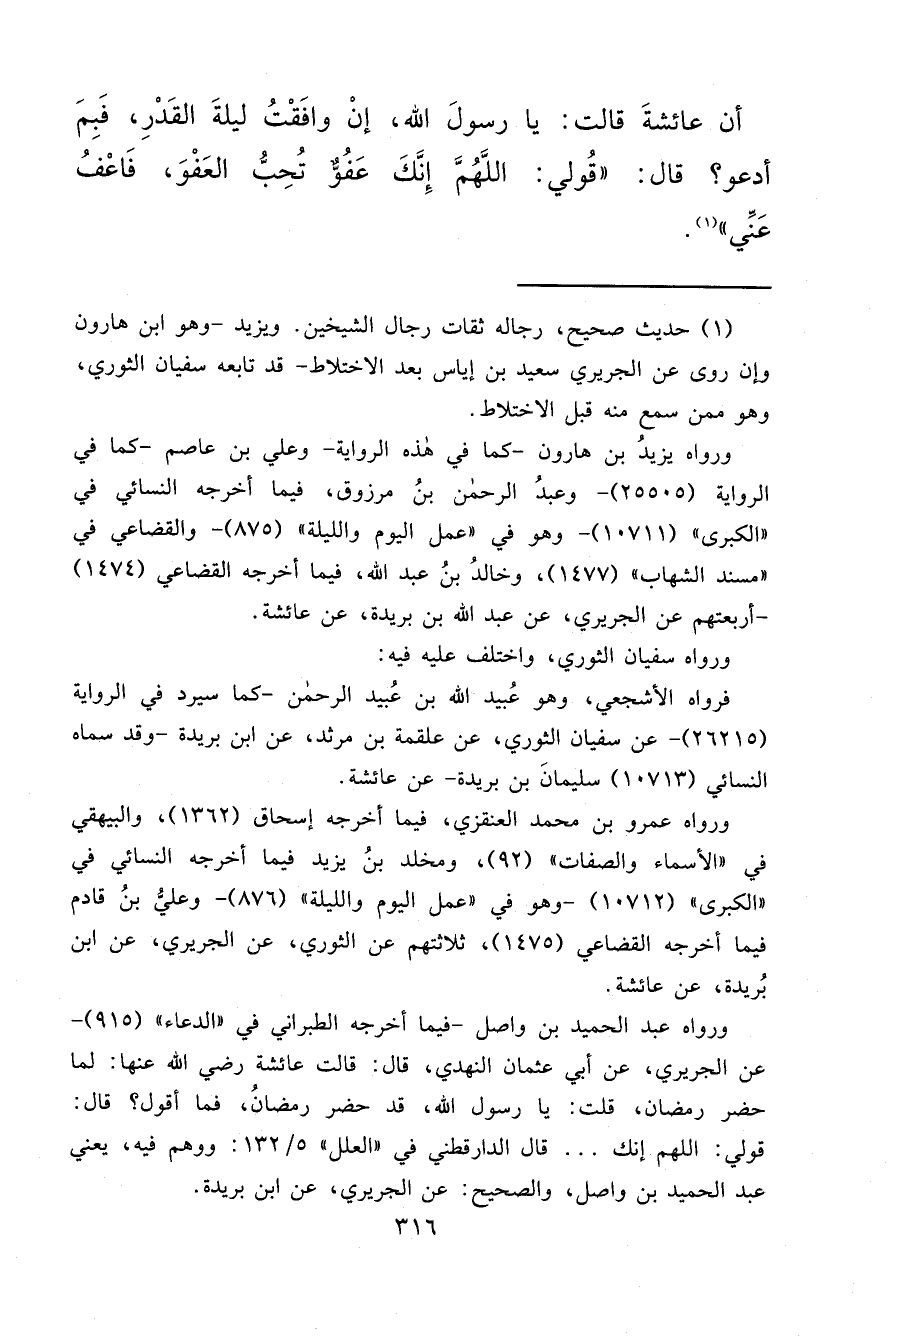 أن عائشةَ قالت: يا رسولَ الله، إنْ وافَقْتُ ليلةَ القَدْرِ، فَبِمَ
أدعو؟ قال: «قُولي: اللَّهُمَّ إِنَّكَ عَفُوٌّ تُحِبُّ العَفْوَ، فَاعْفُ
عَنِّي»(١).
(١) حديث صحيح، رجاله ثقات رجال الشيخين. ويزيد -وهو ابن هارون
وإن روى عن الجريري سعيد بن إياس بعد الاختلاط- قد تابعه سفيان الثوري،
وهو ممن سمع منه قبل الاختلاط.
ورواه يزيدُ بن هارون -كما في هٰذه الرواية- وعلي بن عاصم -كما في
الرواية (٢٥٥٠٥)- وعبدُ الرحمٰن بنُ مرزوق، فيما أخرجه النسائي في
«الكبرى» (١٠٧١١)- وهو في «عمل اليوم والليلة» (٨٧٥)- والقضاعي في
«مسند الشهاب» (١٤٧٧)، وخالدُ بنُ عبد الله، فيما أخرجه القضاعي (١٤٧٤)
-أربعتهم عن الجريري، عن عبد الله بن بريدة، عن عائشة.
ورواه سفيان الثوري، واختلف عليه فيه:
فرواه الأشجعي، وهو عُبيد الله بن عُبيد الرحمٰن -كما سيرد في الرواية
(٢٦٢١٥)- عن سفيان الثوري، عن علقمة بن مرثد، عن ابن بريدة -وقد سماه
النسائي (١٠٧١٣) سليمانَ بن بريدة- عن عائشة.
ورواه عمرو بن محمد العنقزي، فيما أخرجه إسحاق (١٣٦٢)، والبيهقي
في «الأسماء والصفات» (٩٢)، ومخلد بنُ يزيد فيما أخرجه النسائي في
«الكبرى» (١٠٧١٢) -وهو في «عمل اليوم والليلة» (٨٧٦)- وعليُّ بنُ قادم
فيما أخرجه القضاعي (١٤٧٥)، ثلاثتهم عن الثوري، عن الجريري، عن ابن
بُريدة، عن عائشة.
ورواه عبد الحميد بن واصل -فيما أخرجه الطبراني في «الدعاء» (٩١٥)-
عن الجريري، عن أبي عثمان النهدي، قال: قالت عائشة رضي الله عنها: لما
حضر رمضان، قلت: يا رسول الله، قد حضر رمضانُ، فما أقول؟ قال:
قولي: اللهم إنك ... قال الدارقطني في «العلل» ٥/ ١٣٢: ووهم فيه، يعني
عبد الحميد بن واصل، والصحيح: عن الجريري، عن ابن بريدة.
٣١٦